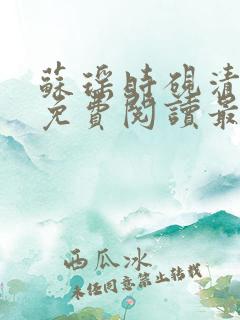 蘇瑤時硯清
免費閱讀最
西瓜冰
未经同意禁止转载